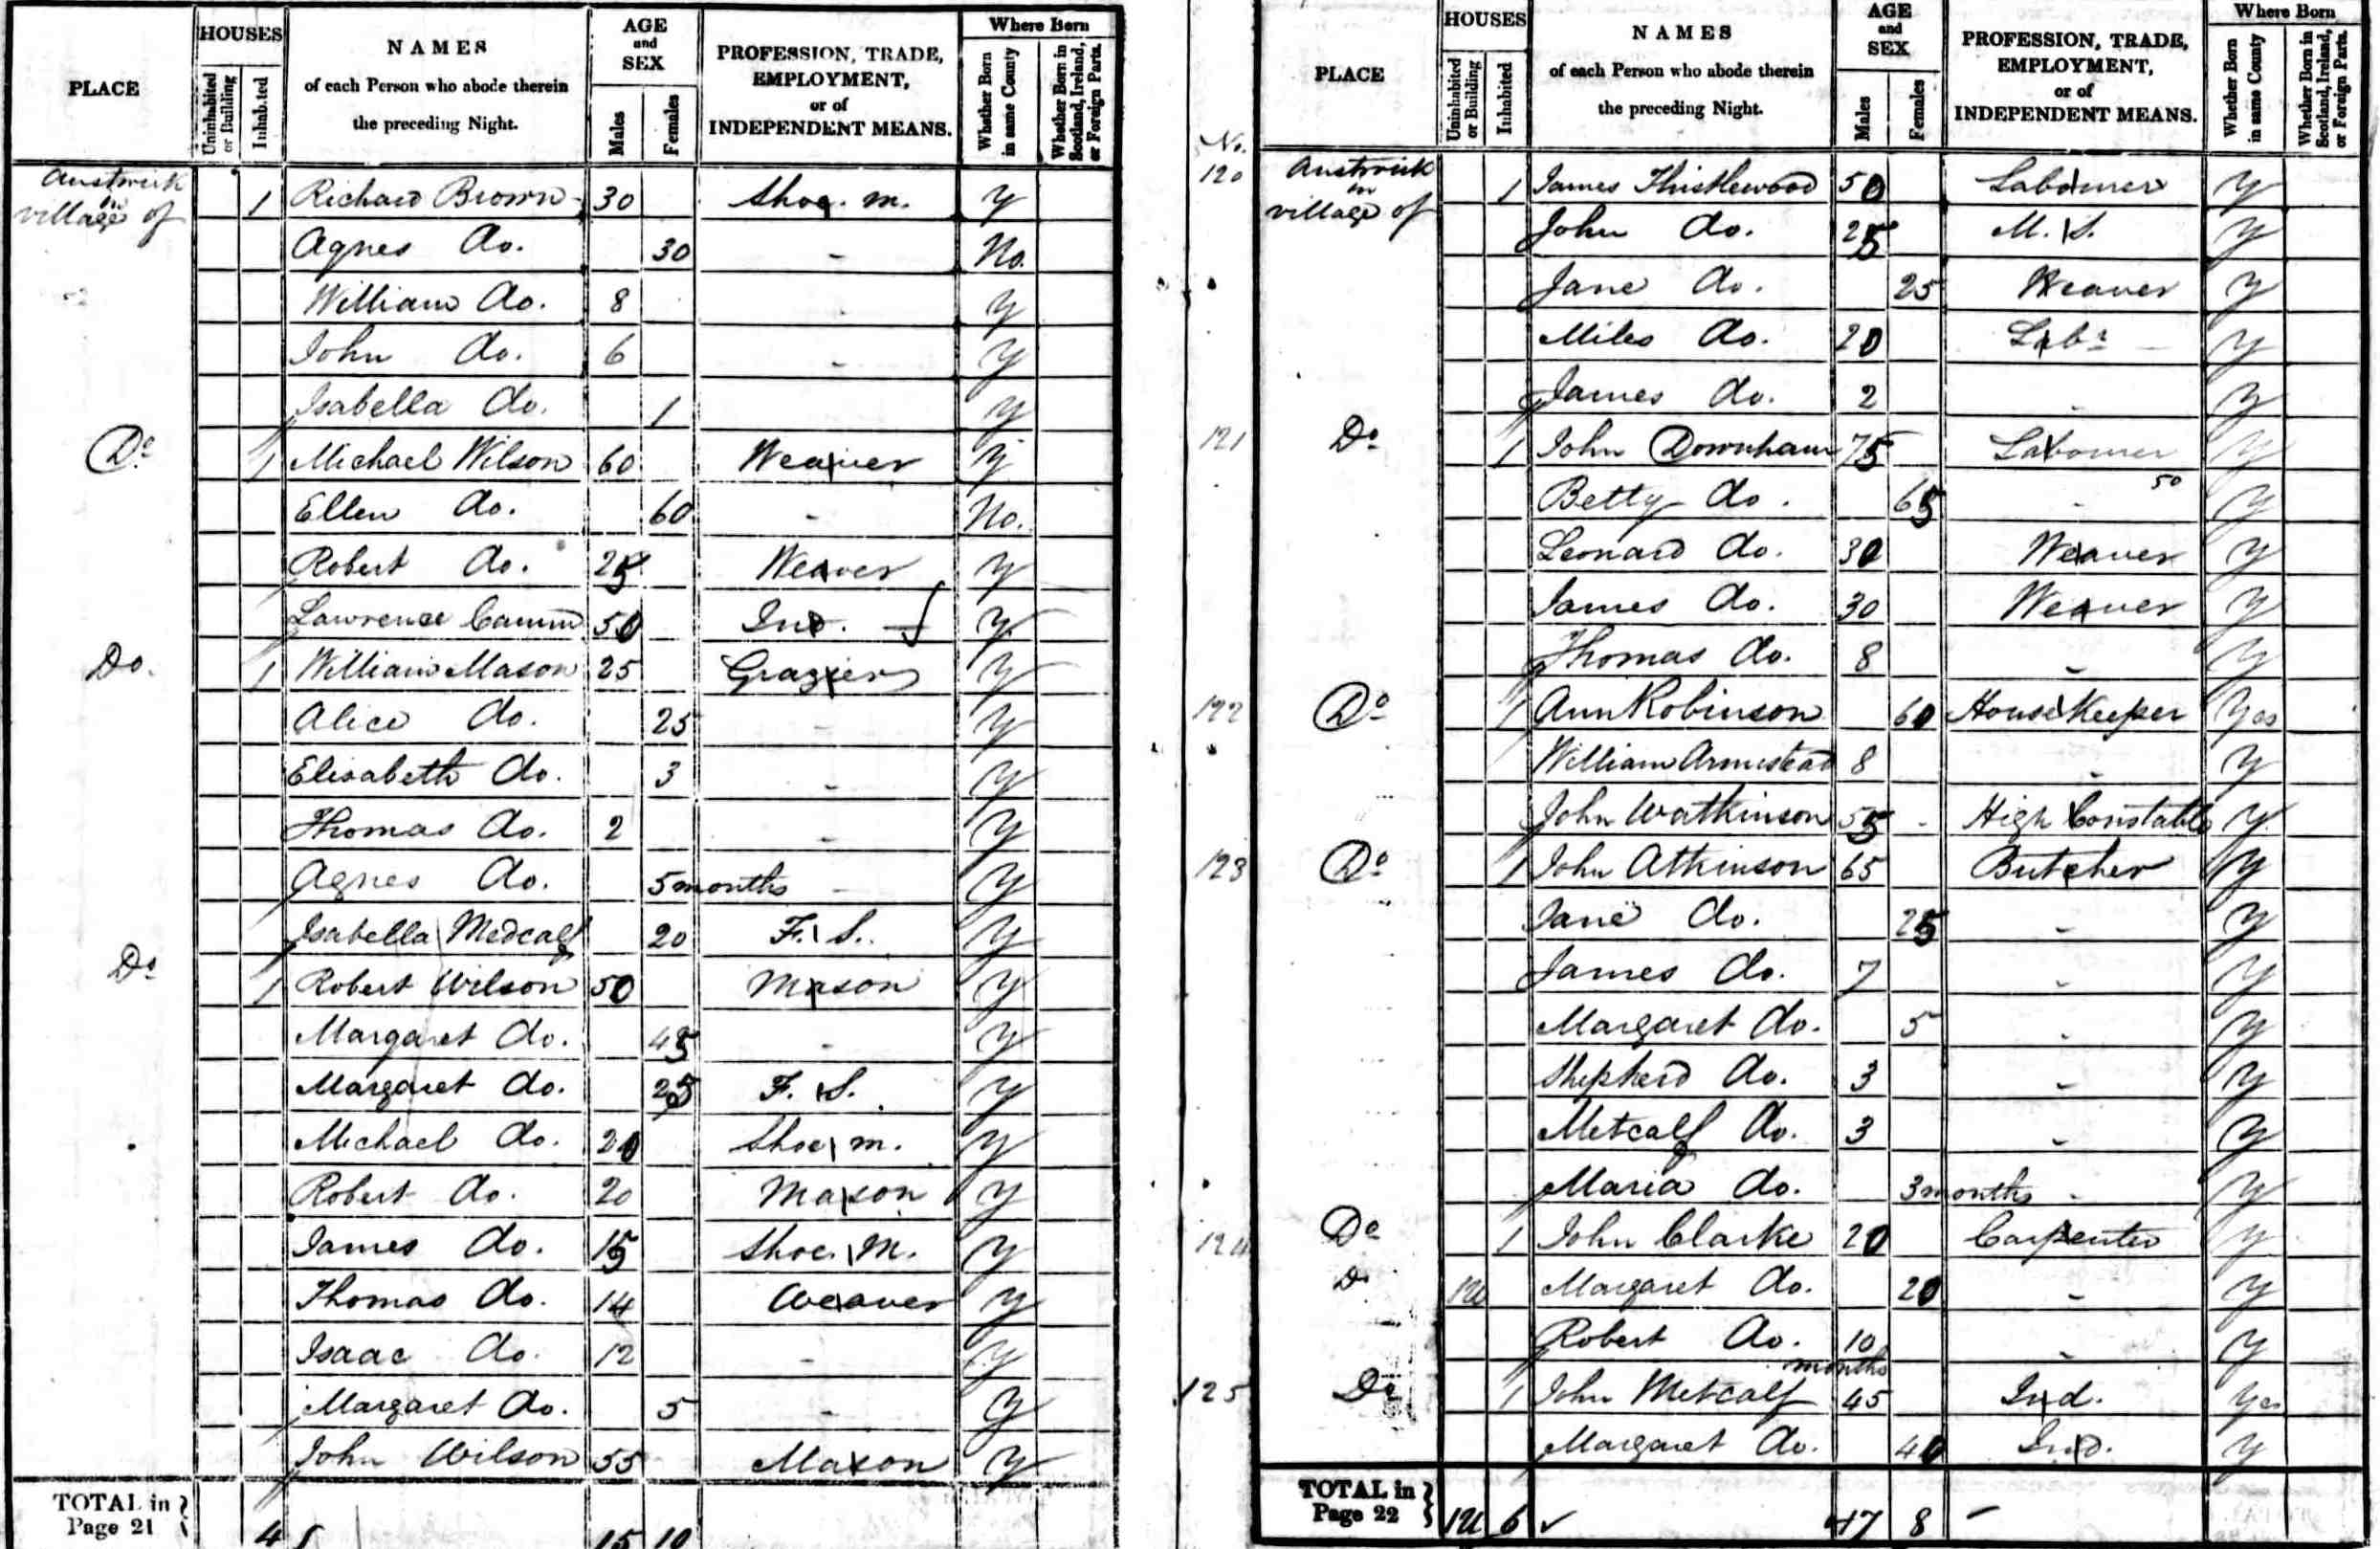 PLACE
HOUSES
Uninhabited or Building
Inhabited
NAMES
of each Person who abode therein
the preceding Night.
AGE
and
SEX
Males
Females
PROFESSION, TRADE,
EMPLOYMENT,
or of
INDEPENDENT MEANS.
Where Born
Whether Born in same County
Whether Born in Scotland, Ireland, or Foreign Parts.
Austwick in 1 Richard Brown 30 Shoe. m. y
village of
Agnes do. 30 - No.
William do. 8 y
John do. 6 - y
Isabella do. 1 - y
Do 1 Michael Wilson 60 Weaver y
Ellen do. 60 - No.
Robert do. 25 Weaver y
Lawrence Camm 50 Ind. y
Do. 1 William Mason 25 Grazier y
Alice do. 25 - y
Elisabeth do. 3 - y
Thomas do. 2 - y
Agnes do. 5 months - y
Isabella Medcalf 20 F. S. y
Do 1 Robert Wilson 50 Mason y
Margaret do. 45 - y
Margaret do. 25 F. S. y
Michael do. 20 Shoe m. y
Robert do. 20 Mason y
James do. 15 Shoe. M. y
Thomas do. 14 Weaver y
Isaac do. 12 - y
Margaret do. 5 - y
John Wilson 55 Mason y
TOTAL in
Page 21 4 15 10
PLACE
HOUSES
Uninhabited or Building
Inhabited
NAMES
of each Person who abode therein
the preceding Night.
AGE
and
SEX
Males
Females
PROFESSION, TRADE,
EMPLOYMENT,
or of
INDEPENDENT MEANS.
Where Born
Whether Born in same County
Whether Born in Scotland, Ireland, or Foreign Parts.
No.
120 Austwick in 1 James Thistlewood 50 Labourer y
village of John do. 25 M. S. y
Jane do. 25 Weaver y
Miles do. 20 Labr y
James do. 2 - y
121 Do 1 John Downham 75 Labourer y
50
Betty do. 65 - y
Leonard do. 30 Weaver y
James do. 30 Weaver y
Thomas do. 8 - y
122 Do 1 Ann Robinson 60 House Keeper Yes
William Armistead 8 - y
John Watkinson 55 - High Constable y
123 Do 1 John Atkinson 65 Butcher y
Jane do. 25 - y
James do. 7 - y
Margaret do. 5 - y
Shepherd do. 3 - y
Metcalf do. 3 - y
Maria do. 3 months - y
124 Do 1 John Clarke 20 Carpenter y
Do 1U Margaret do. 20 - y
Robert do. 10 months - y
125 Do 1 John Metcalf 45 Ind. Yes
Margaret do. 40 Ind. y
TOTAL in
Page 22 1U 6 17 8 -